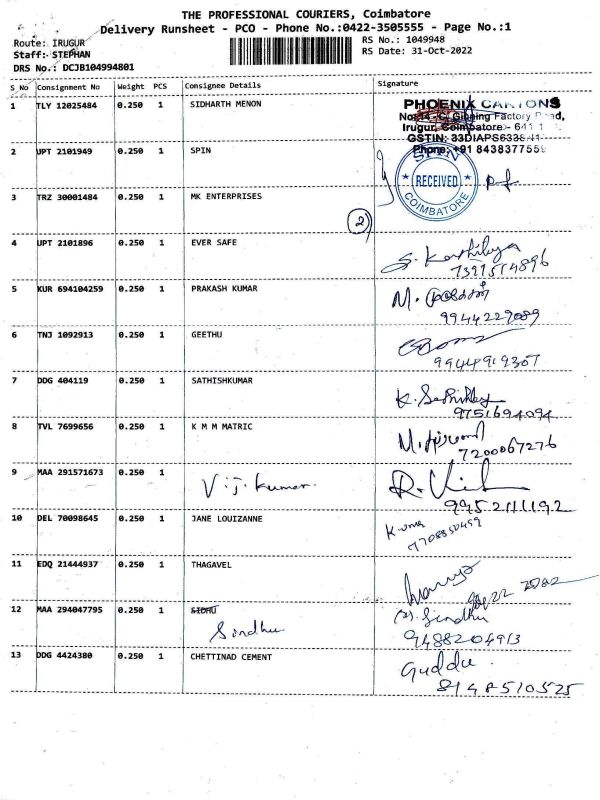 THE PROFESSIONAL COURIERS, Coimbatore
Delivery Runsheet - PCO - Phone No.:0422-3505555 - Page No.:1
Route: IRUGUR
RS No.: 1049948
Staff: STEPHAN
RS Date: 31-Oct-2022
DRS No.: DCJB104994801
S No Consignment No Weight PCS Consignee Details Signature
1 TLY 12025484 0.250 1 SIDHARTH MENON
PHOENIX CARTONS
Factory
Irugur, Coimbatore - 641
GSTIN:
Phone: +91 8438377559
2 UPT 2101949 0.250 1 SPIN
SPIN
RECEIVED
COIMBATORE
3 TRZ 30001484 0.250 1 MK ENTERPRISES
2
4 UPT 2101896 0.250 1 EVER SAFE
7397514896
5 KUR 694104259 0.250 1 PRAKASH KUMAR
9944227089
6 TNJ 1092913 0.250 1 GEETHU
9944919307
7 DDG 404119 0.250 1 SATHISHKUMAR
9751694094
8 TVL 7699656 0.250 1 K M M MATRIC
7200067276
9 MAA 291571673 0.250 1 V.J. Kumar.
9952111192
10 DEL 70098645 0.250 1 JANE LOUIZANNE
K-uma
7708850459
11 EDQ 21444937 0.250 1 THAGAVEL
12 MAA 294047795 0.250 1 SIDHU
Sindhu
Sindhu
9488204913
13 DDG 4424380 0.250 1 CHETTINAD CEMENT
Guddu
8148510525